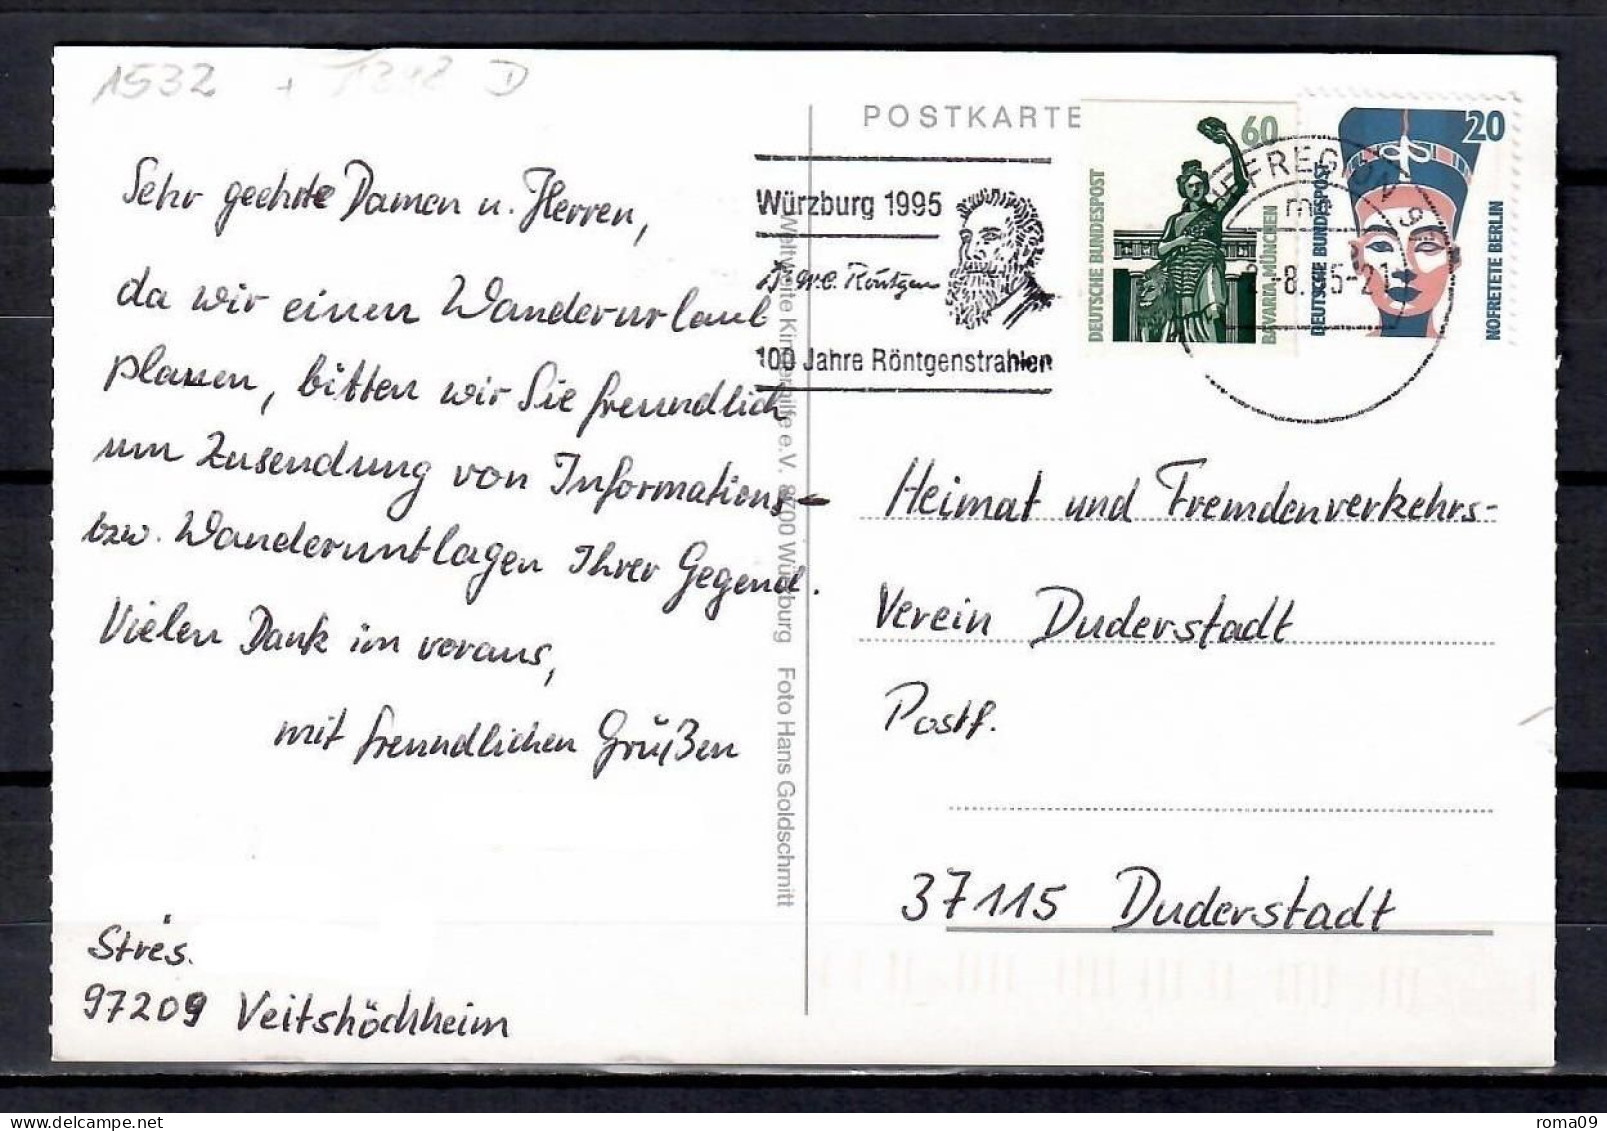 1532 + D
POSTKARTE
Sehr geehrte Damen u. Herren,
da wir einen Wanderurlaub
planen, bitten wir Sie freundlich
um Zusendung von Informations-
bzw. Wanderuntlagen Ihrer Gegend.
Vielen Dank im voraus,
mit freundlichen Grüßen
97209 Veitshöchheim
Weltweite Kinderhilfe e.V. 8700 Würzburg Foto Hans Goldschmitt
Würzburg 1995
W. C. Röntgen
100 Jahre Röntgenstrahlen
60
DEUTSCHE BUNDESPOST
BAVARIA MÜNCHEN
20
DEUTSCHE BUNDESPOST
NOFRETETE BERLIN
BRIEFREGION 9
Heimat und Fremdenverkehrs-
Verein Duderstadt
Postf.
37115 Duderstadt
roma09